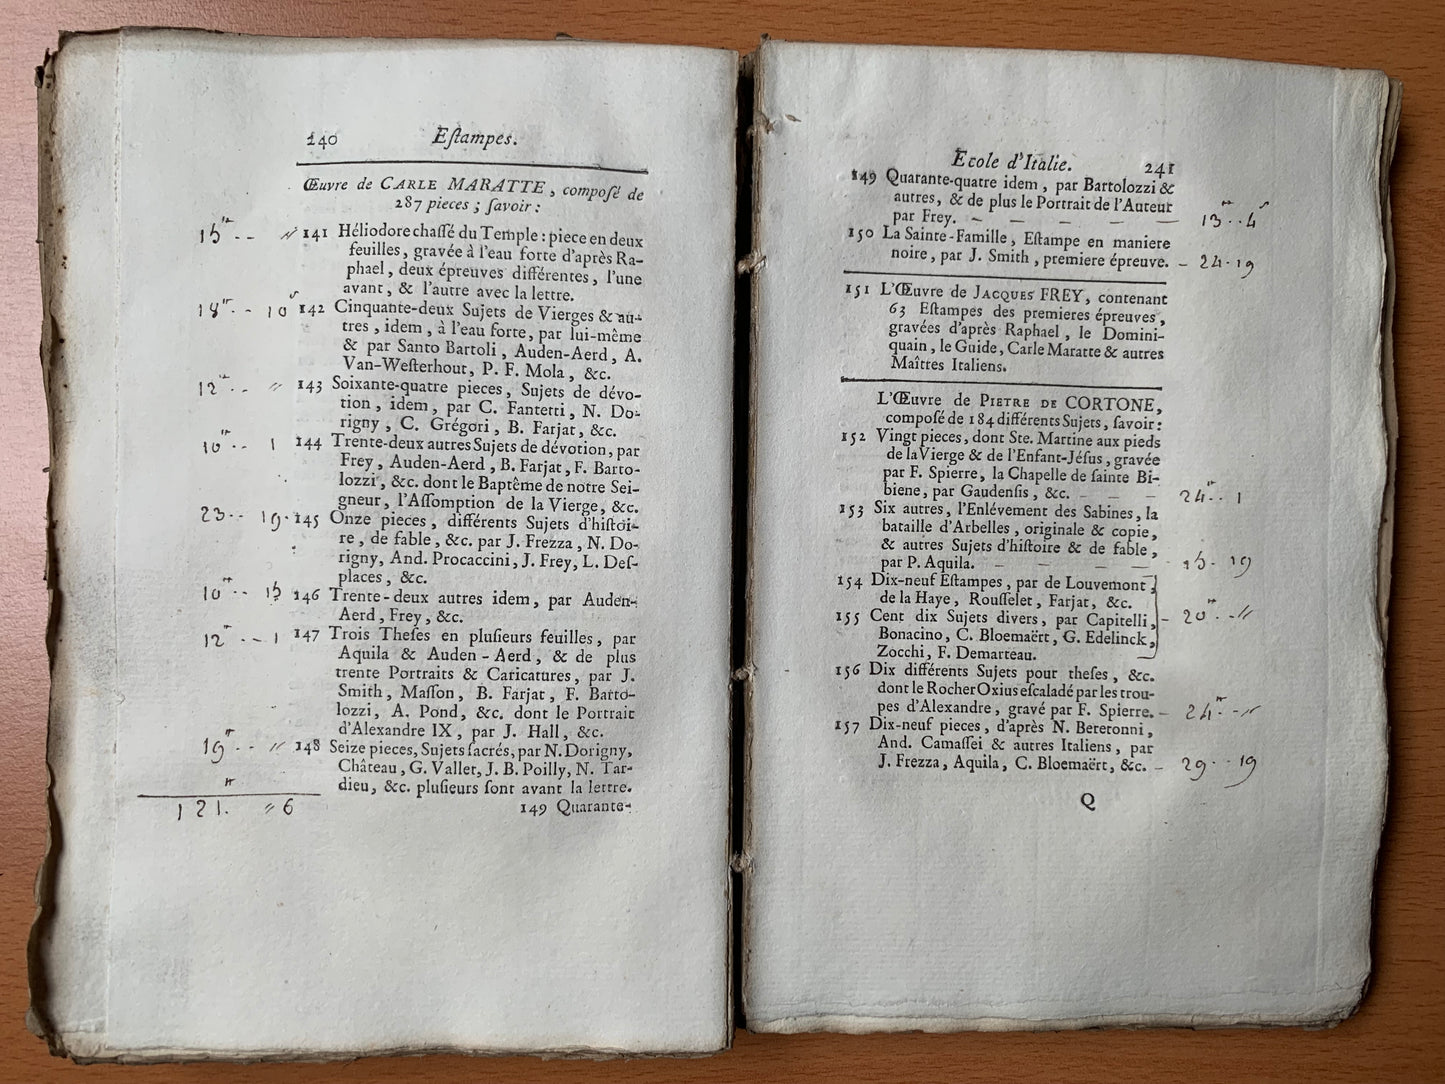 240 Eſtampes.
Œuvre de CARLE MARATTE, compoſé de
287 pieces ; ſavoir :
15# -- // 141 Héliodore chaſſé du Temple : piece en deux
feuilles, gravée à l'eau forte d'après Ra-
phael, deux épreuves différentes, l'une
avant, & l'autre avec la lettre.
18# -- 10ſ 142 Cinquante-deux Sujets de Vierges & au-
tres, idem, à l'eau forte, par lui-même
& par Santo Bartoli, Auden-Aerd, A.
Van-Weſterhout, P. F. Mola, &c.
12# -- // 143 Soixante-quatre pieces, Sujets de dévo-
tion, idem, par C. Fantetti, N. Do-
rigny, C. Grégori, B. Farjat, &c.
10# -- 1 144 Trente-deux autres Sujets de dévotion, par
Frey, Auden-Aerd, B. Farjat, F. Barto-
lozzi, &c. dont le Baptême de notre Sei-
gneur, l'Aſſomption de la Vierge, &c.
23 -- 19 145 Onze pieces, différents Sujets d'hiſtoi-
re, de fable, &c. par J. Frezza, N. Do-
rigny, And. Procaccini, J. Frey, L. Deſ-
places, &c.
10# -- 15 146 Trente-deux autres idem, par Auden-
Aerd, Frey, &c.
12# -- 1 147 Trois Theſes en pluſieurs feuilles, par
Aquila & Auden-Aerd, & de plus
trente Portraits & Caricatures, par J.
Smith, Maſſon, B. Farjat, F. Barto-
lozzi, A. Pond, &c. dont le Portrait
d'Alexandre IX, par J. Hall, &c.
19# -- // 148 Seize pieces, Sujets ſacrés, par N. Dorigny,
Château, G. Vallet, J. B. Poilly, N. Tar-
dieu, &c. pluſieurs ſont avant la lettre.
121# // 6 149 Quarante-
Ecole d'Italie. 241
149 Quarante-quatre idem, par Bartolozzi &
autres, & de plus le Portrait de l'Auteur
par Frey. — — — — — 13# -- 4ſ
150 La Sainte-Famille, Eſtampe en maniere
noire, par J. Smith, premiere épreuve. — 24 - 19
151 L'Œuvre de JACQUES FREY, contenant
63 Eſtampes des premieres épreuves,
gravées d'après Raphael, le Domini-
quain, le Guide, Carle Maratte & autres
Maîtres Italiens.
L'Œuvre de PIETRE DE CORTONE,
compoſé de 184 différents Sujets, ſavoir :
152 Vingt pieces, dont Ste. Martine aux pieds
de la Vierge & de l'Enfant-Jéſus, gravée
par F. Spierre, la Chapelle de ſainte Bi-
biene, par Gaudenſis, &c. — — — 24# -- 1
153 Six autres, l'Enlévement des Sabines, la
bataille d'Arbelles, originale & copie,
& autres Sujets d'hiſtoire & de fable,
par P. Aquila. — — — — 15 - 19
154 Dix-neuf Eſtampes, par de Louvemont,
de la Haye, Rouſſelet, Farjat, &c.
155 Cent dix Sujets divers, par Capitelli, — 20# -- //
Bonacino, C. Bloemaërt, G. Edelinck,
Zocchi, F. Demarteau.
156 Dix différents Sujets pour theſes, &c.
dont le Rocher Oxius eſcaladé par les trou-
pes d'Alexandre, gravé par F. Spierre. — 24# -- //
157 Dix-neuf pieces, d'après N. Bereronni,
And. Camaſſei & autres Italiens, par
J. Frezza, Aquila, C. Bloemaërt, &c. — 29 -- 19
Q